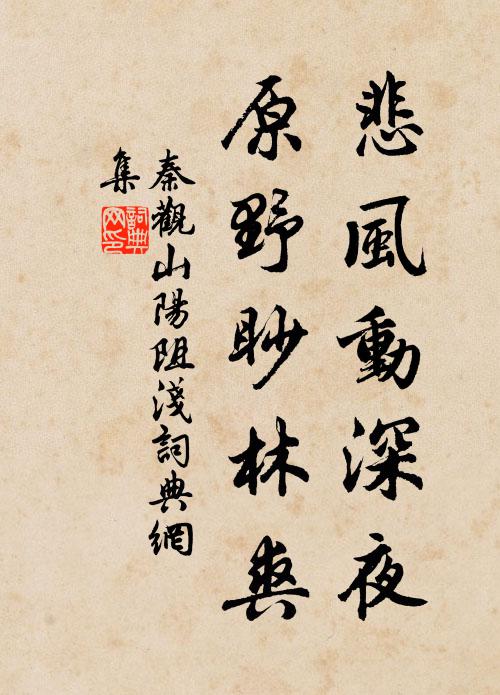 悲風動深夜
原野眇林爽
秦觀山陽阻淺詞典網
集
詞典
网印